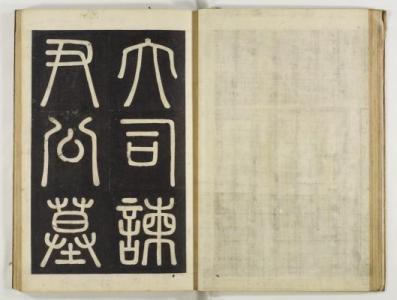 大司諫
尹公墓